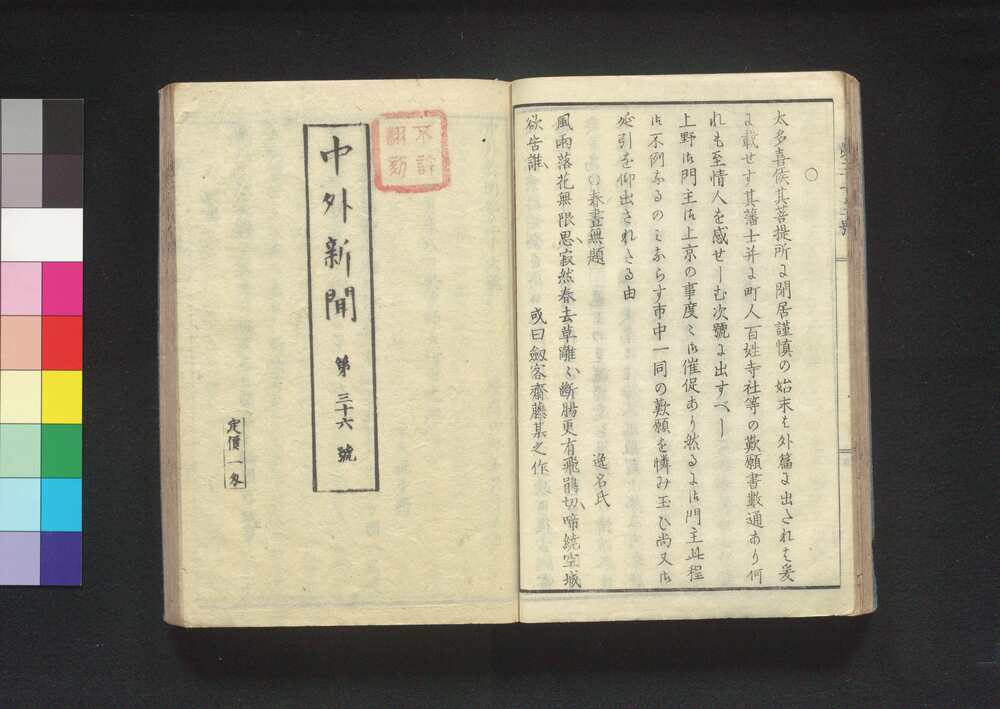 ○
太多喜侯其菩提所に閉居謹慎の始末は外篇に出されは爰
に載せす其藩士并に町人百姓寺社等の歎願書數通あり何
れも至情人を感せしむ次號に出すべし
上野御門主御上京の事度々御催促あり然るに御門主此程
御不例なるのみならす市中一同の歎願を憐み玉ひ尚又御
延引を仰出されたる由
春晝無題
逸名氏
風雨落花無限思寂然春去草離々斷腸更有飛鵑切啼繞空城
欲告誰
或曰劔客齋藤某之作
不許
翻刻
中外新聞 第三十六號
定價一匁